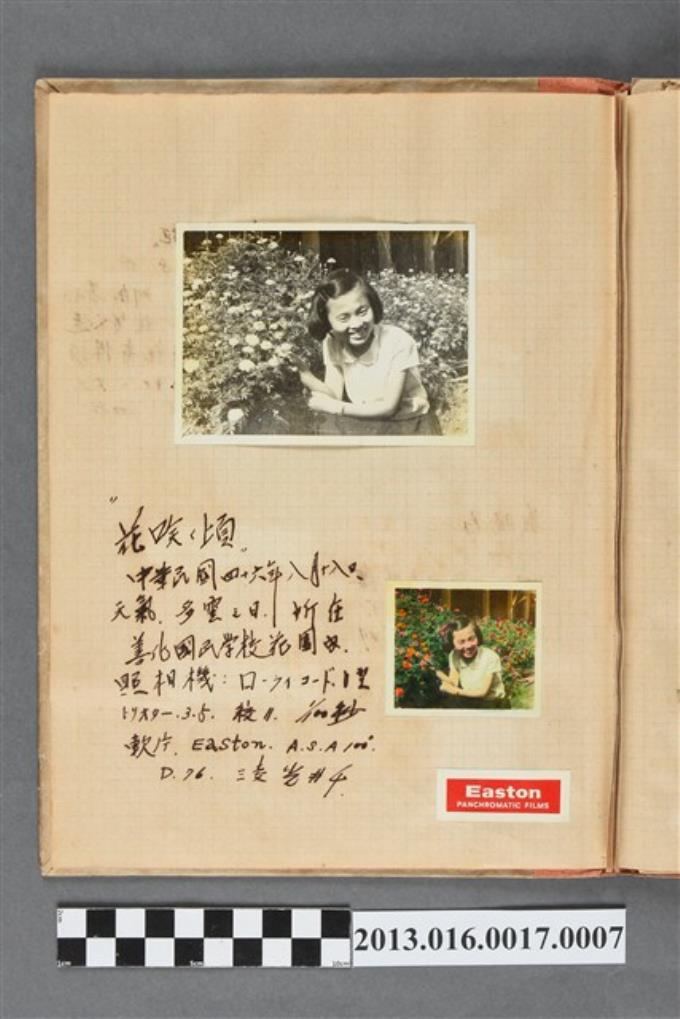 "花咲く頃"
中華民國四十六年八月十八日、
天氣、多雲之日、所在
善化國民学校花園内、
照相機：ローライコードⅠ型
トリオター.3.5. 絞11. 1/100秒
軟片. Easton. A.S.A 100°.
D.76. 三菱 #4.
Easton
PANCHROMATIC FILMS
1cm 5cm 10cm
2013.016.0017.0007